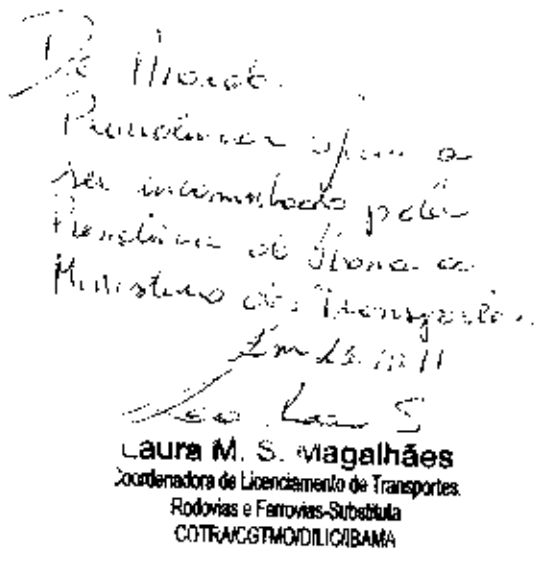 Providenciar ofício a
ser encaminhado pela
Presidência do Ibama ao
Ministério dos Transportes.
Em
Laura M. S. Magalhães
Coordenadora de Licenciamento de Transportes
Rodovias e Ferrovias-Substituta
COTRA/CGTMO/DILIC/IBAMA